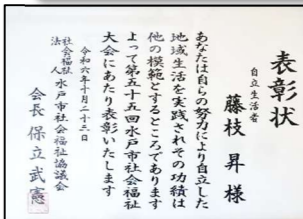 表彰状
自立生活者
藤枝 昇 様
あなたは自らの努力により自立した
地域生活を実践されその功績は
他の模範とするところであります
よって第五十五回水戸市社会福祉
大会にあたり表彰いたします
令和六年十月二十三日
社会福祉法人 水戸市社会福祉協議会
会長 保立武憲